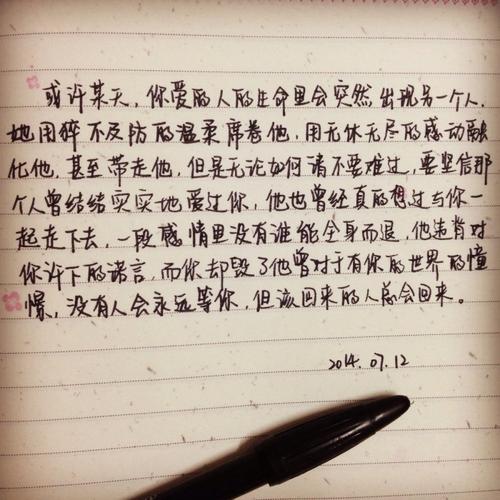 或许某天，你爱的人的生命里会突然出现另一个人，
她用猝不及防的温柔席卷他，用无休无尽的感动融
化他，甚至带走他，但是无论如何请不要难过，要坚信那
个人曾结结实实地爱过你，他也曾经真的想过与你一
起走下去，一段感情里没有谁能全身而退，他违背对
你许下的诺言，而你却毁了他曾对于有你的世界的憧
憬，没有人会永远等你，但该回来的人总会回来。
2014.07.12